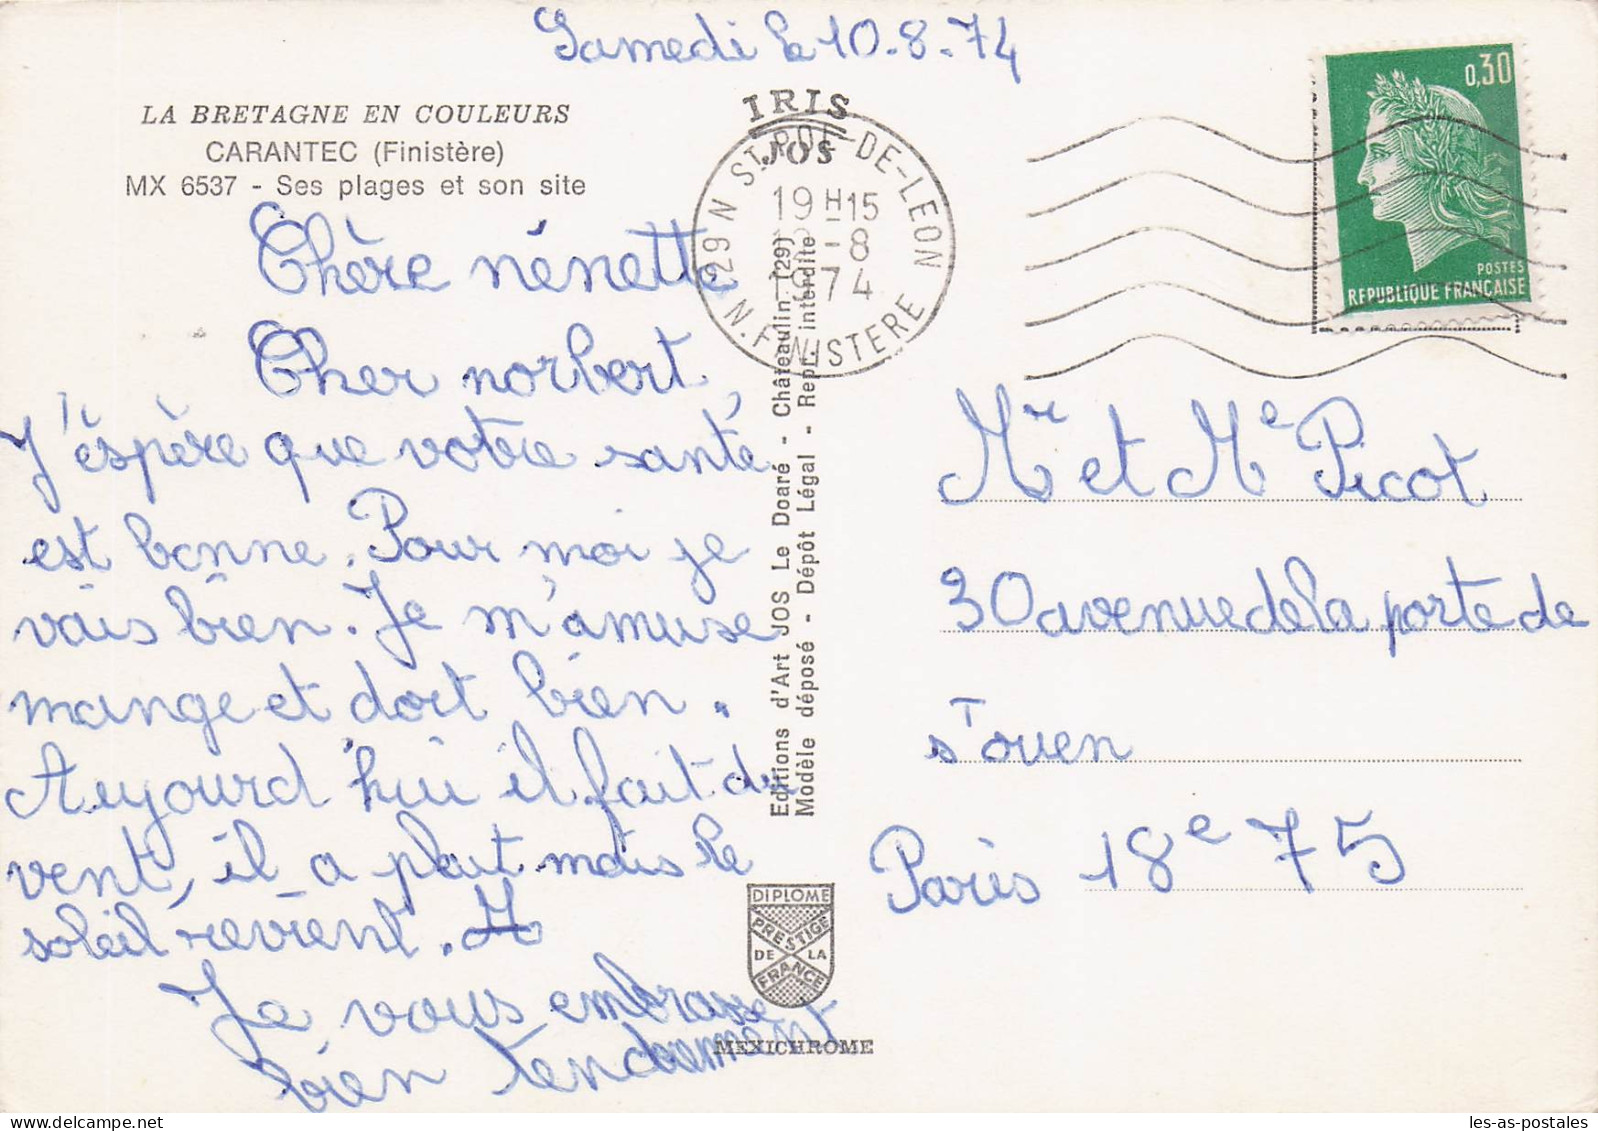 Samedi le 10-8-74
LA BRETAGNE EN COULEURS
CARANTEC (Finistère)
MX 6537 - Ses plages et son site
Chère nénette
Cher norbert,
J'éspère que votre santé
est bonne. Pour moi je
vais bien. Je m'amuse
mange et dort bien.
Aujourd'hui il fait du
vent, il a plut mais le
soleil revient.
Je vous embrasse
bien tendrement
IRIS
JOS
29 N ST POL-DE-LEON
19 H15
-8
1974
N. FINISTERE
Editions d'Art JOS Le Doaré - Châteaulin (29)
Modèle déposé - Dépôt Légal - Repr. interdite
DIPLOME
PRESTIGE
DE LA
FRANCE
MEXICHROME
0,30
POSTES
REPUBLIQUE FRANÇAISE
Mr et Me Picot
30 avenue de la porte de
sT ouen
Paris 18e 75
les-as-postales